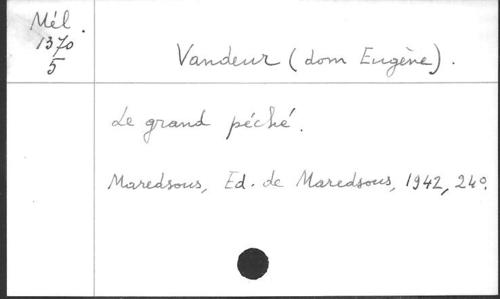 Mél.
1370
5
Vandeur (dom Eugène).
Le grand péché.
Maredsous, Ed. de Maredsous, 1942, 24°.